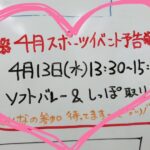 4月スポーツイベント予告
4月13日(水)13:30~15:
ソフトバレー&しっぽ取り
の参加 待ってまーす